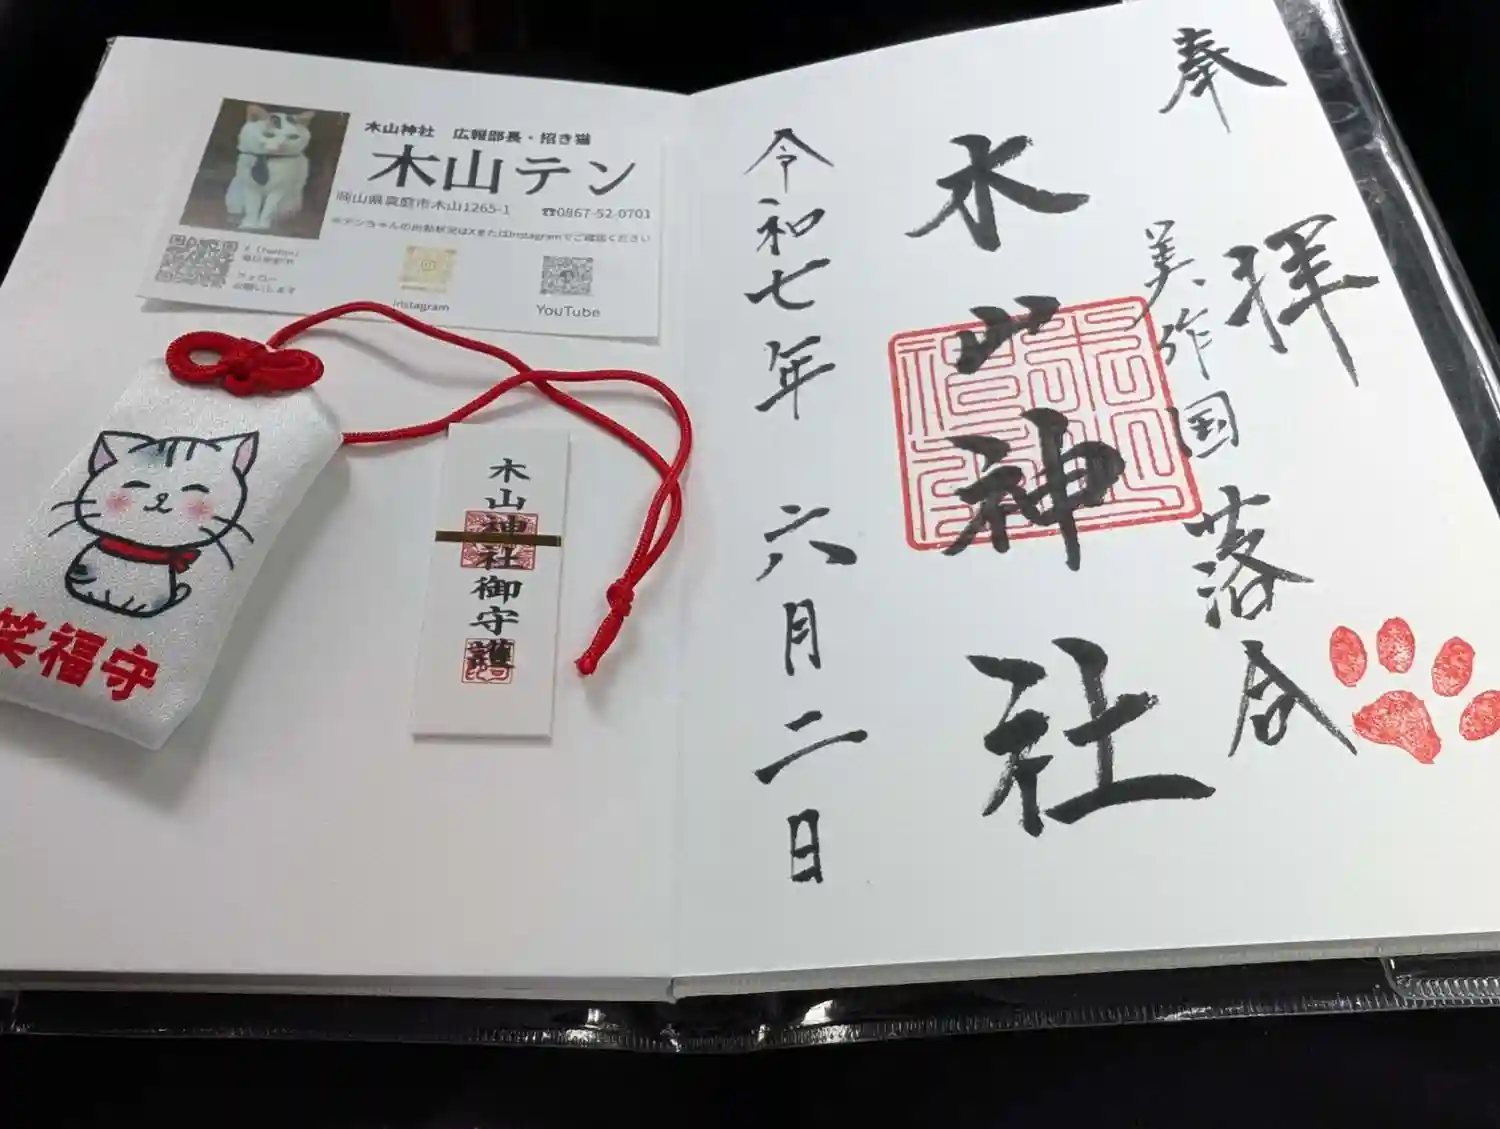 木山神社 広報部長・招き猫
木山テン
岡山県真庭市木山1265-1 ☎0867-52-0701
※テンちゃんの出勤状況はXまたはInstagramでご確認ください
X（Twitter）
フォロー
お願いします
Instagram
YouTube
笑福守
木山神社御守護
奉拝
美作国落合
木山神社
令和七年六月二日